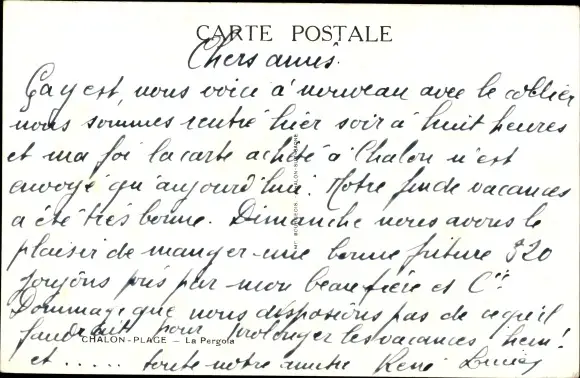 CARTE POSTALE
Chers amis.
Ça y est, nous voici à nouveau avec le collier
nous sommes rentré hier soir à huit heures
et ma foi la carte acheté à Chalon n'est
envoyé qu'aujourd'hui. Notre fin de vacances
a été très bonne. Dimanche nous avons le
plaisir de manger une bonne friture 320
goujons pris par mon beau frère et Cie
Dommage que nous disposions pas de ce qu'il
faudrait pour prolonger les vacances hein!
et ..... toute notre amitié René Lucien
CHALON-PLAGE — La Pergola